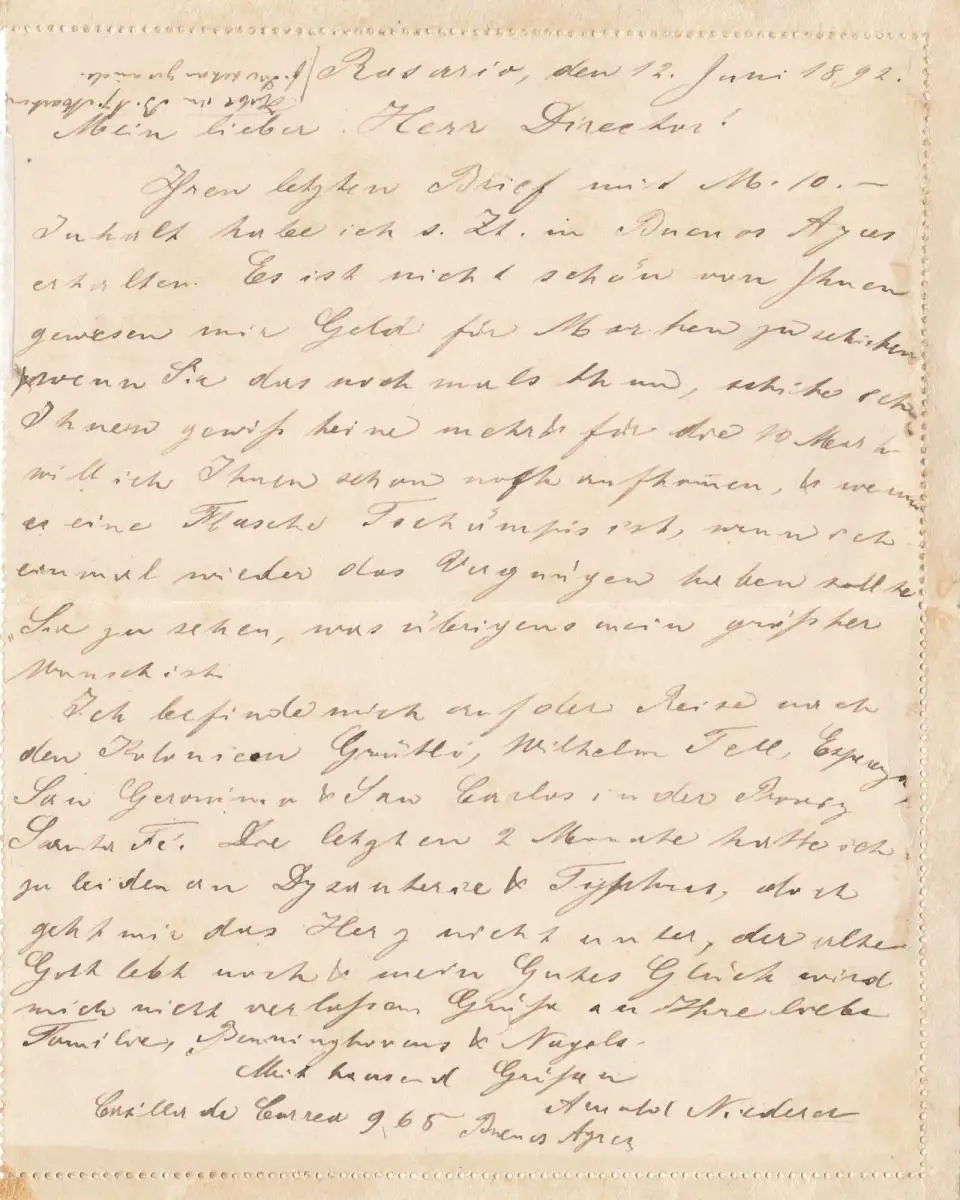 Rosario, den 12. Juni 1892.
Mein lieber Herr Director!
Ihren letzten Brief mit M. 10.—
Inhalt habe ich s. Zt. in Buenos Ayres
erhalten. Es ist nicht schön von Ihnen
gewesen mir Geld für Marken zu schicken
& wenn Sie das noch mals thun, schike ich
Ihnen gewiß keine mehr & für die 10 Mark
will ich Ihnen schon noch aufkom̄en, & wenn
es eine Flasche Tschämpis ist, wenn ich
einmal wieder das Vergnügen haben sollte
Sie zu sehen, was übrigens mein größter
Wunsch ist.
Ich befinde mich auf der Reise nach
den Kolonieen Grütli, Wilhelm Tell, Esperanza,
San Geronimo & San Carlos in der Provz
Santa Fé. Die letzten 2 Monate hatte ich
zu leiden an Dysanterie & Typhus, doch
geht mir das Herz nicht unter, der alte
Gott lebt noch & mein Gutes Glück wird
mich nicht verlaßen Grüße an Ihre liebe
Familie, Benninghovens & Nagels.
Mit tausend Grüßen
Arnold
Casilla de Correo 965 Buenos Ayres